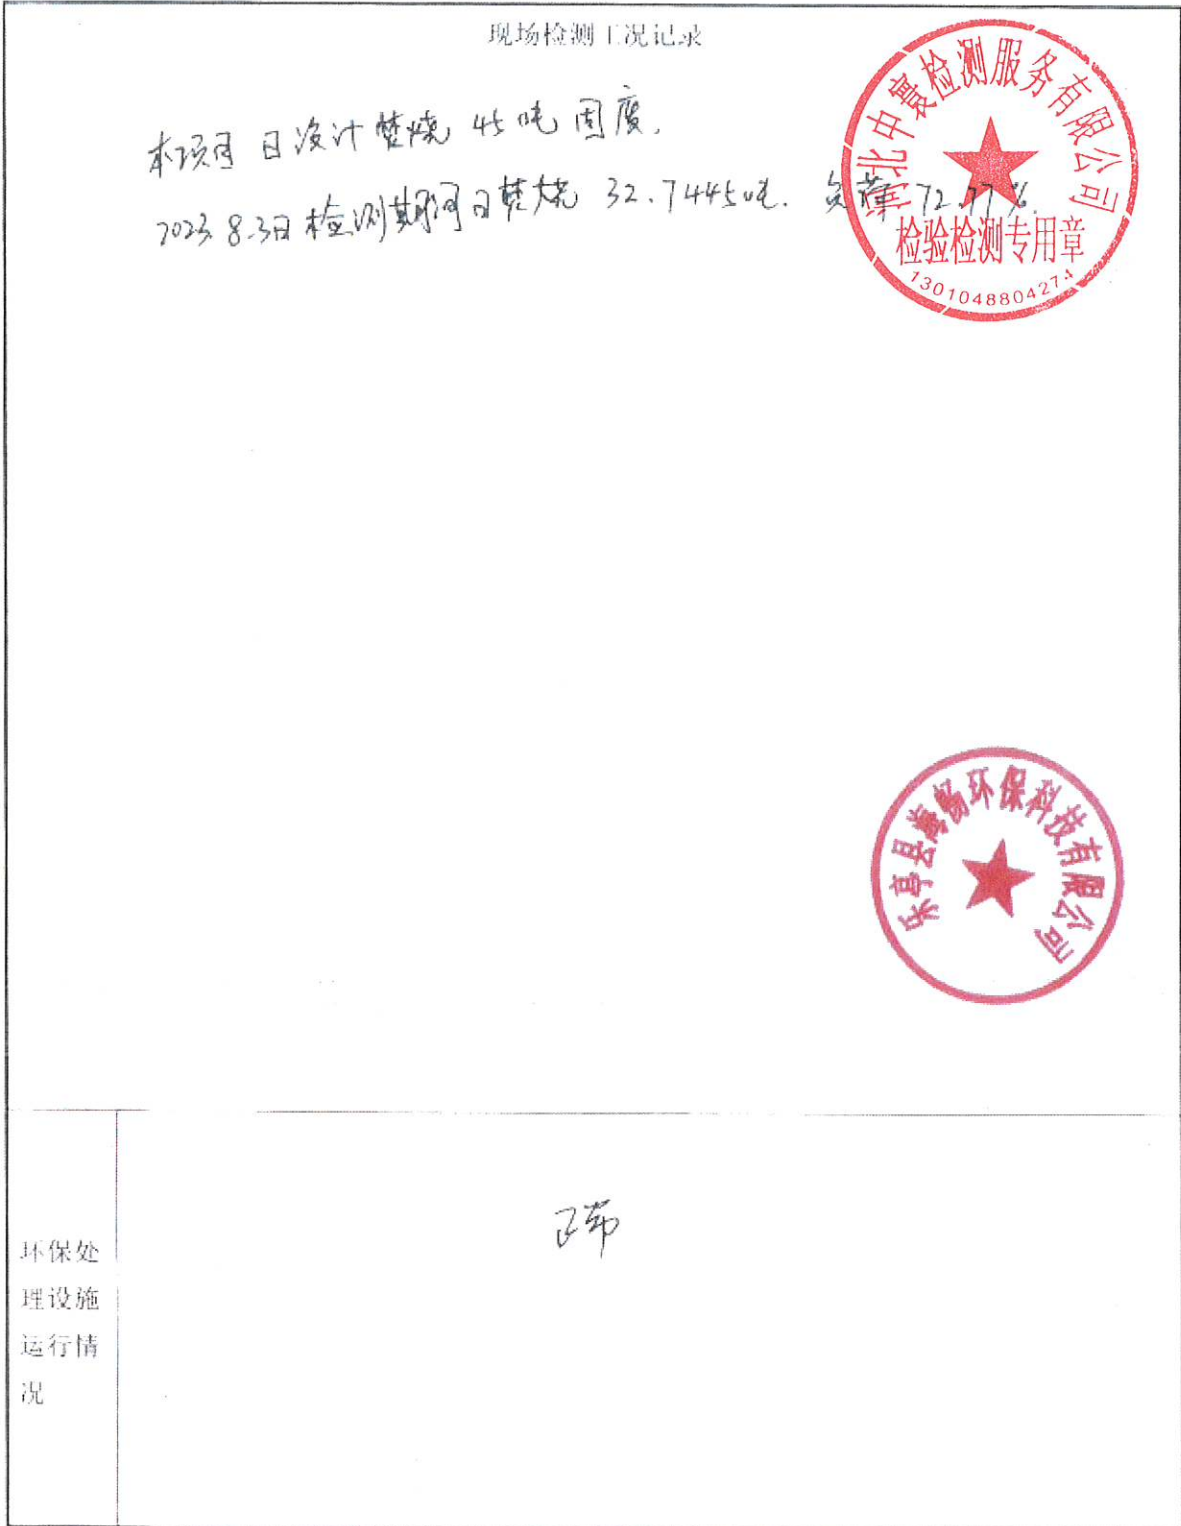 现场检测工况记录
本项目日设计焚烧 45吨固废.
2023.8.3日检测期间日焚烧 32.7445吨. 负荷 72.77%.
河北中寰检测服务有限公司
检验检测专用章
1301048804274
乐亭县海畅环保科技有限公司
环保处
理设施
运行情
况
正常